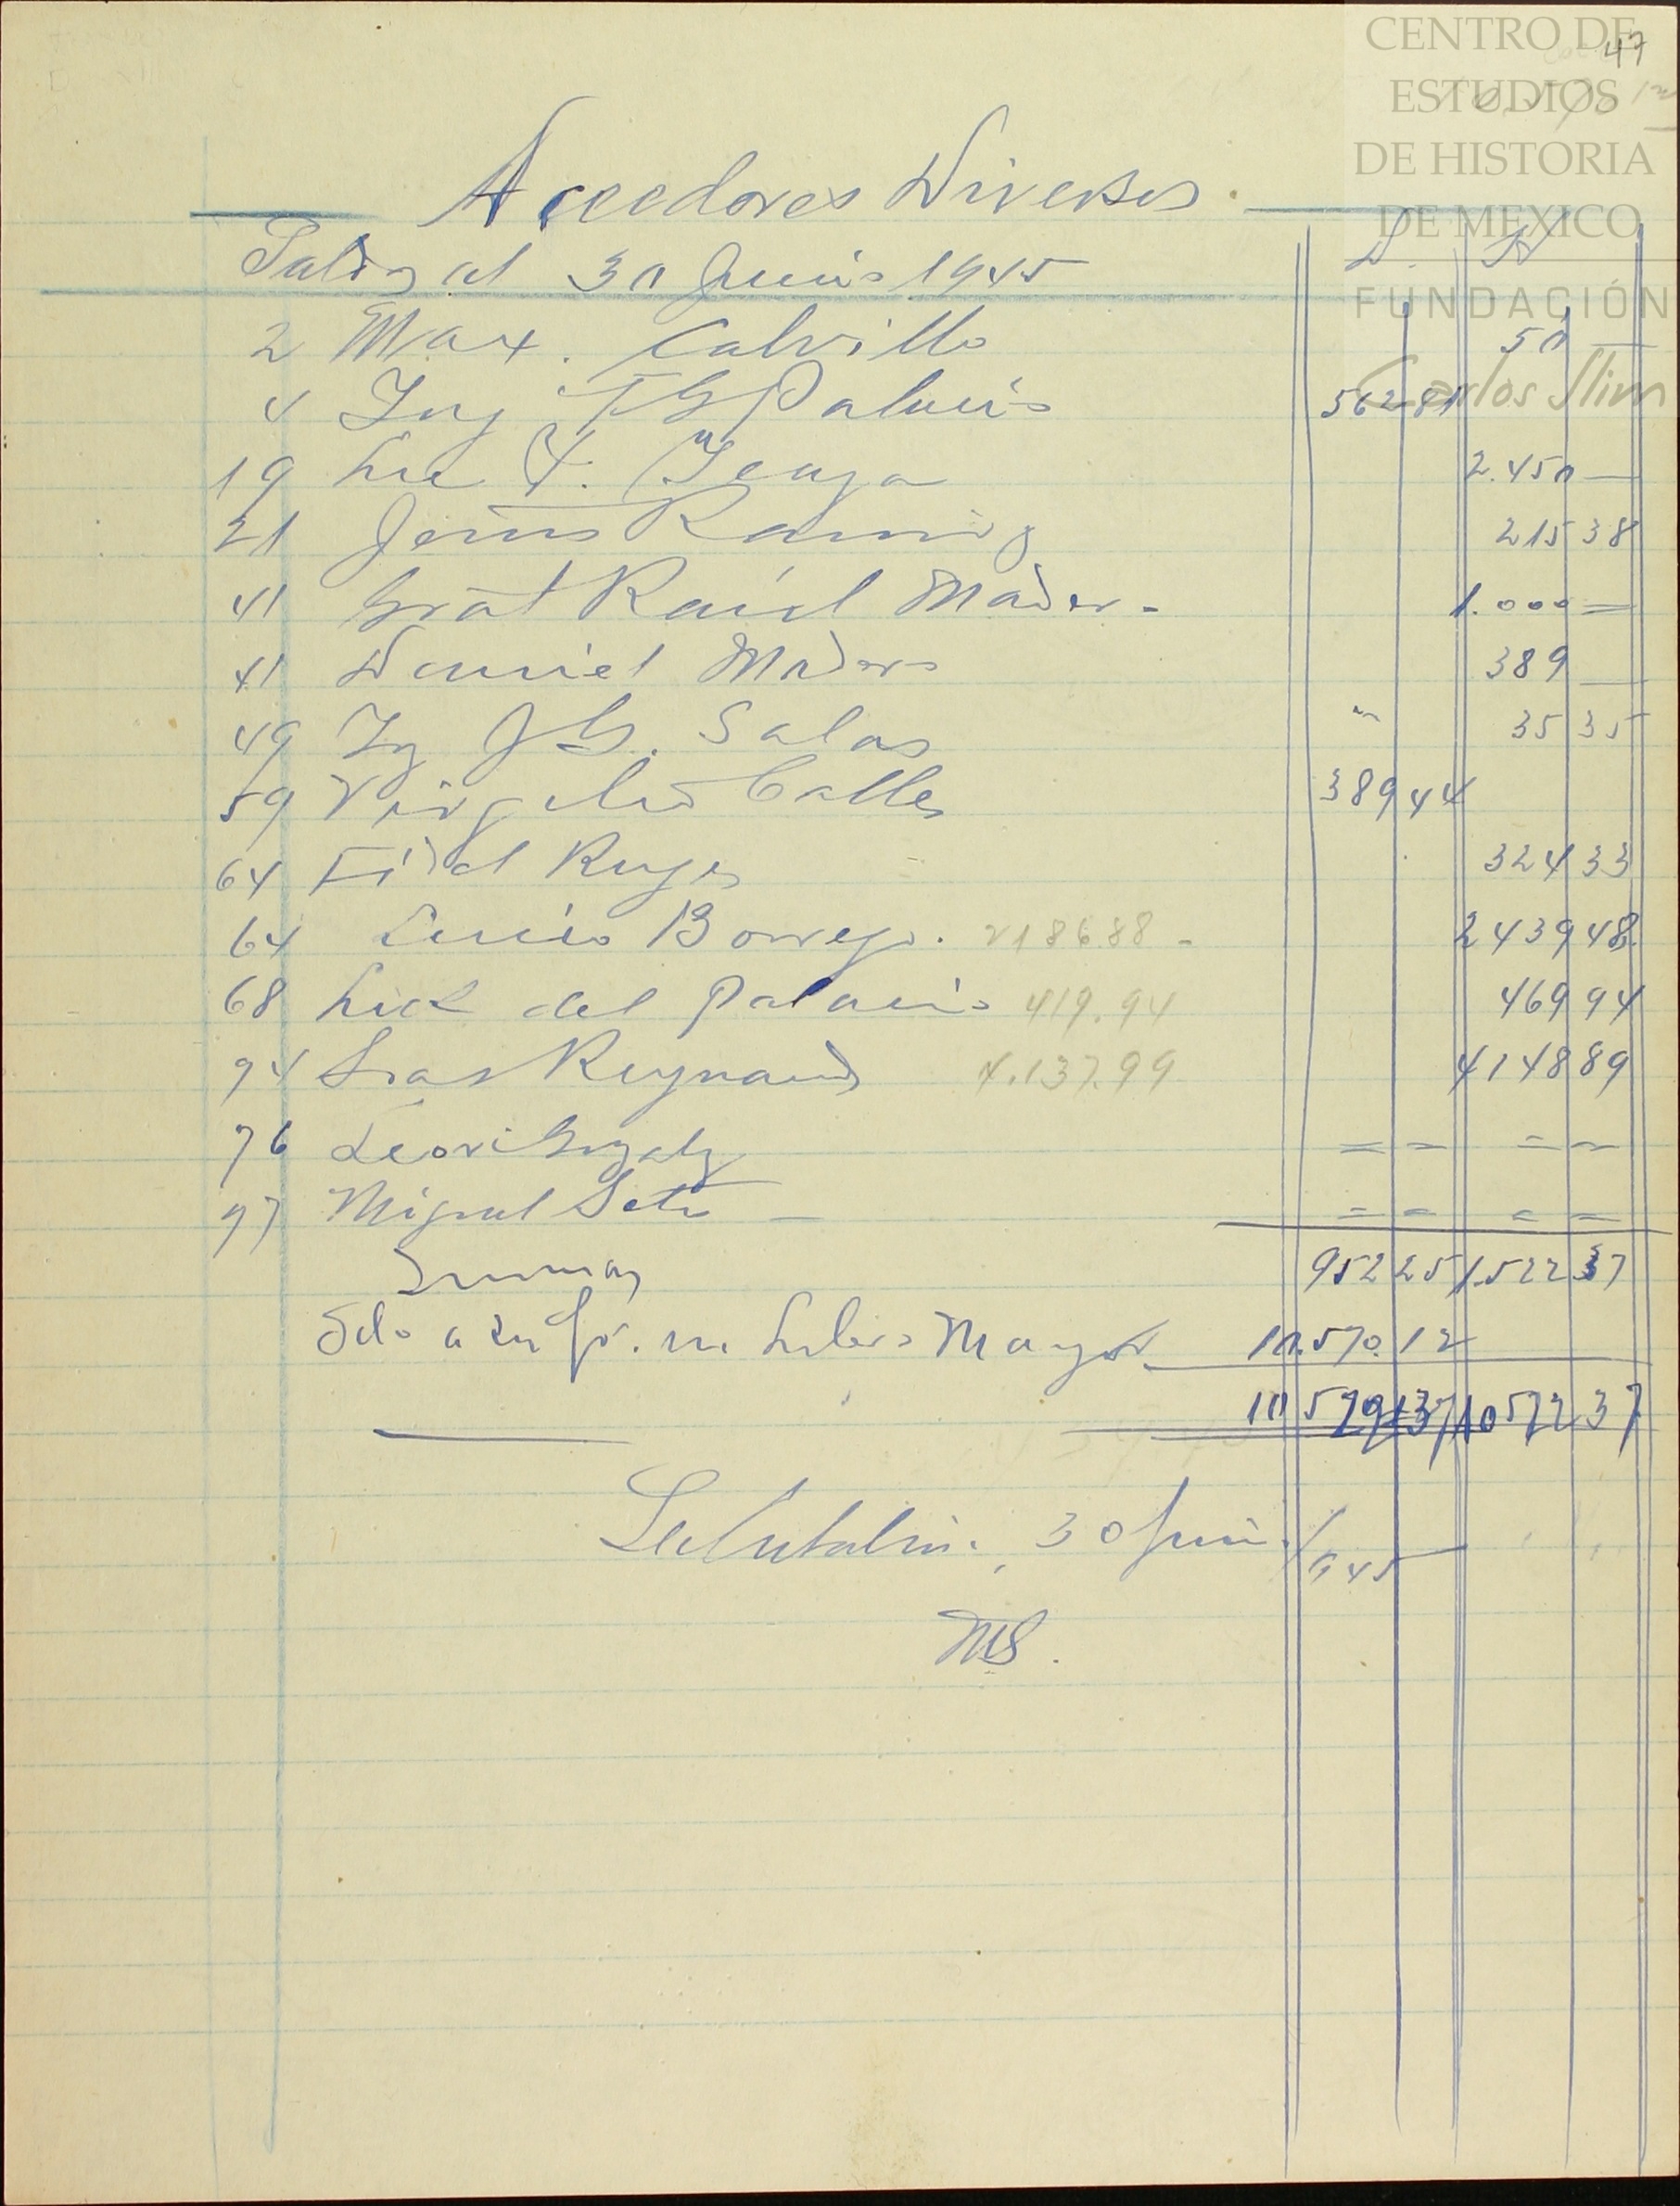 CENTRO DE
ESTUDIOS
DE HISTORIA
DE MEXICO
FUNDACIÓN
Carlos Slim
47
Acreedores Diversos.
Saldos al 30 Junio 1945 D. H
2 Max. Calvillo 50 —
4 Ing F G Palacio 562 81
19 Lic F. 2.450 —
21 Jesus Ramirez 215 38
41 Gral Raúl Madero - 1.000 =
41 Daniel Madero 389 —
49 Ig J G. Salas 35 35
59 Virgilio Calles 389 44
64 Fidel Reyes 324 33
64 Lucio Borrego. 2186.88 - 2439 48
68 Lic R del Palacio 419.94 469 94
74 Sras Reynaud 4.137.99 4148 89
76 Leovi Gnzalz = = = =
77 Miguel Soto — = = = =
Sumas 952 25 1.522 37
Sdo a su fvr. en Libro Mayor 10.570.12
10 5 37 10 522 37
30 Junio /945
MS.